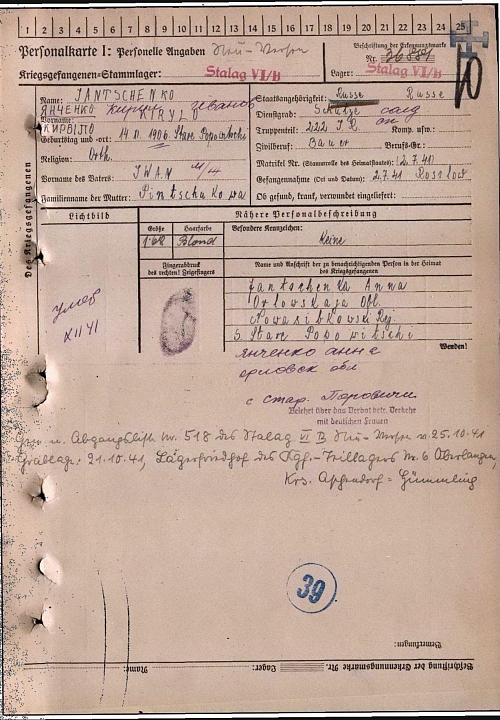 1 2 3 4 5 6 7 8 9 10 11 12 13 14 15 16 17 18 19 20 21 22 23 24 25
Personalkarte I: Personelle Angaben
Beschriftung der Erkennungsmarke
Nr.
Kriegsgefangenen-Stammlager: Stalag VI/B
Lager: Stalag VI/B
Des Kriegsgefangenen
Name: JANTSCHENKO
ЯНЧЕНКО
Vorname: KYRYLO
КИРОЙЛО
Geburtstag und -ort: 14.11.1906.
Religion: Orth.
Vorname des Vaters: IWAN
Familienname der Mutter: Pintschukowa
Staatsangehörigkeit: Russe Russe
Dienstgrad: Schütze
Truppenteil: 222 I.R. Komp. usw.:
Zivilberuf: Bauer Berufs-Gr.:
Matrikel Nr. (Stammrolle des Heimatstaates): 2.7.41
Gefangennahme (Ort und Datum): 2.7.41 Rosslow
Ob gesund, krank, verwundet eingeliefert:
Lichtbild
Nähere Personalbeschreibung
Größe Haarfarbe Besondere Kennzeichen:
1.62 Blond Keine
Fingerabdruck
des rechten! Zeigefingers
Name und Anschrift der zu benachrichtigenden Person in der Heimat
des Kriegsgefangenen
Jantschenka Anna
Orlowskaja Obl.
Nowasibkowski Rej.
S. Stare Popowitschi
Wenden!
XII 41
Янченко анне
орловск обл
с стар. Поповичи
Belehrt über das Verbot betr. Verkehr
mit deutschen Frauen
Abgangsliste Nr. 518 des Stalag VI B Neu-Versen v. 25.10.41
Grablage: 21.10.41, Lagerfriedhof des Kgf.-Teillagers Nr. 6 Oberlangen,
Krs. Aschendorf-Hümmling
39
Bemerkungen:
Name:
Lager: Nr.
Beschriftung der Erkennungsmarke